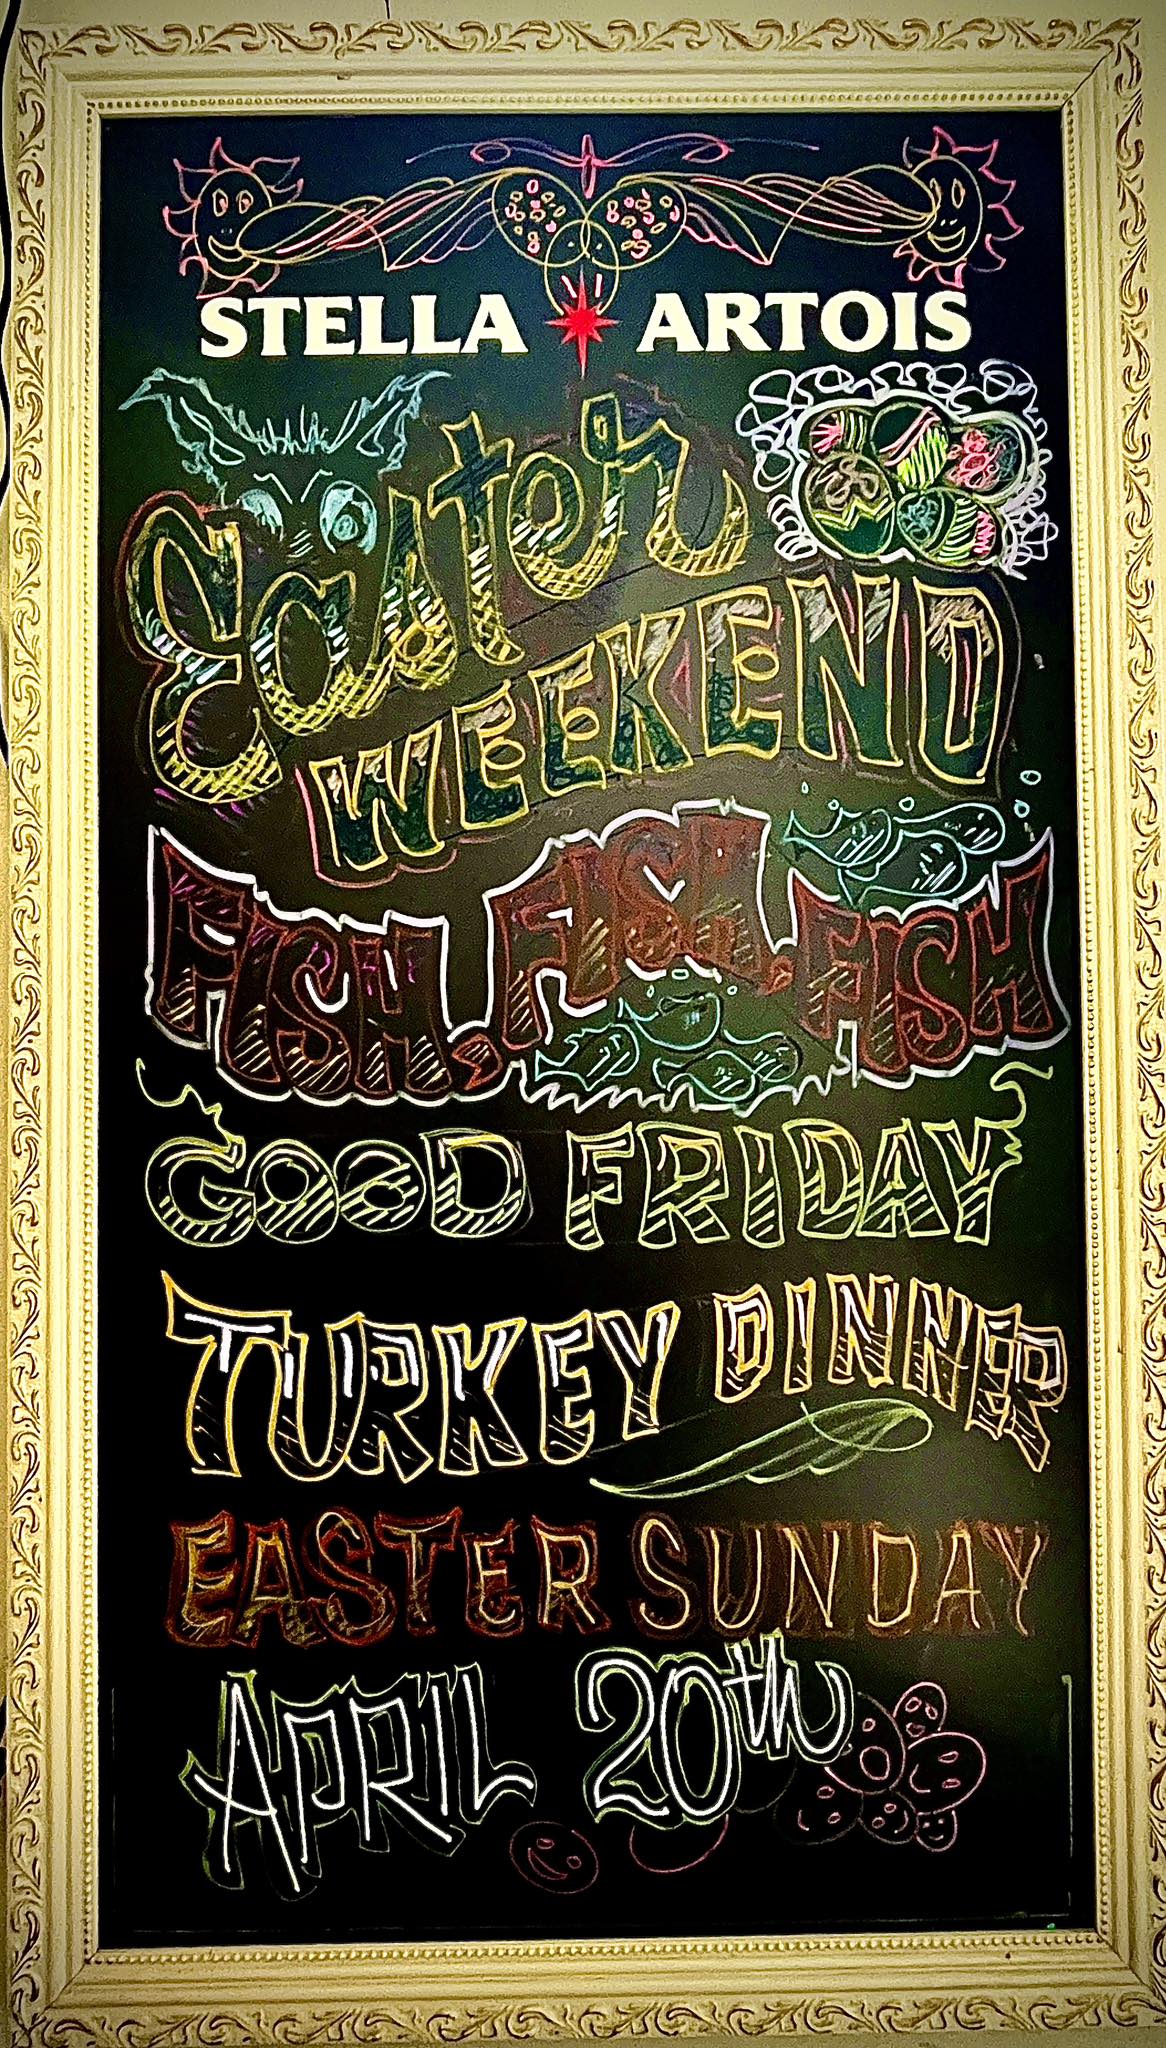 STELLA ARTOIS
Easter
WEEKEND
FISH, FISH, FISH
GOOD FRIDAY
TURKEY DINNER
EASTER SUNDAY
APRIL 20th